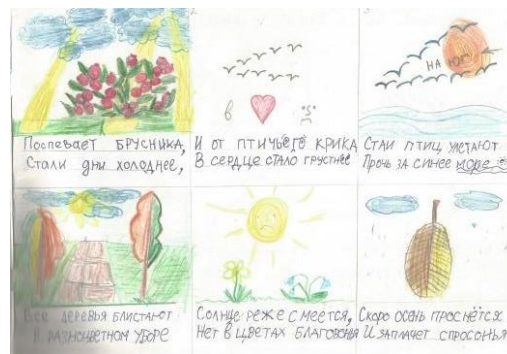 НА ЮГ
В
Поспевает БРУСНИКА,
Стали дни холоднее,
И от птичьего крика
В сердце стало грустнее
Стаи птиц улетают
Прочь за синее море
Все деревья блистают
В разноцветном уборе
Солнце реже смеётся,
Нет в цветах благовонья
Скоро осень проснётся
И заплачет спросонья